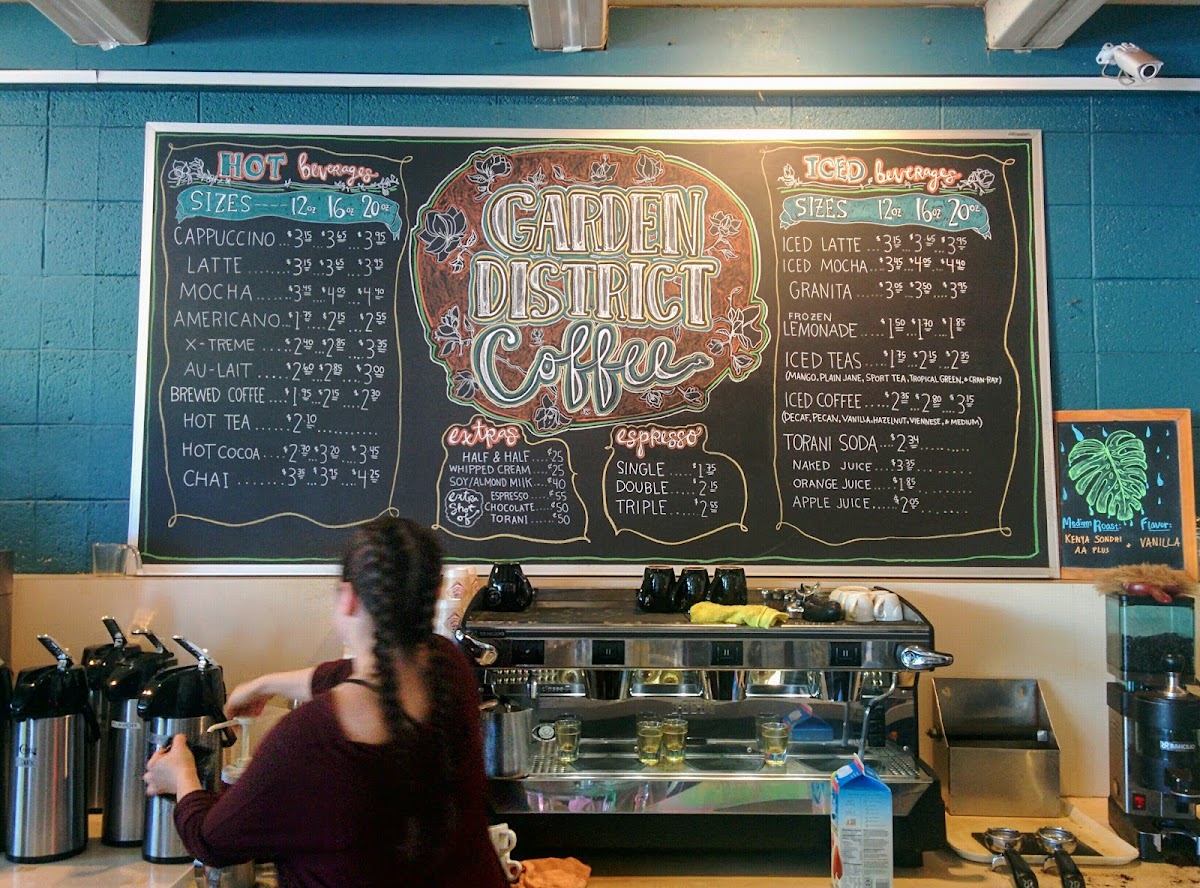 HOT beverages
SIZES 12oz 16oz 20oz
CAPPUCCINO...$3.15 $3.65 $3.95
LATTE.......$3.15...$3.65...$3.95
MOCHA......$3.45...$4.05...$4.40
AMERICANO...$1.75...$2.15...$2.55
X-TREME....$2.40...$2.85...$3.35
AU-LAIT....$2.60...$2.85...$3.00
BREWED COFFEE...$1.95...$2.15....$2.30
HOT TEA....$2.10
HOT COCOA...$2.70..$3.20...$3.45
CHAI.......$3.35...$3.95....$4.25
GARDEN
DISTRICT
Coffee
extras
HALF & HALF....¢25
WHIPPED CREAM...¢25
SOY/ALMOND MILK...¢40
extra shot of
ESPRESSO....¢55
CHOCOLATE....¢50
TORANI.....¢50
espresso
SINGLE....$1.75
DOUBLE...$2.15
TRIPLE....$2.55
ICED beverages
SIZES 12oz 16oz 20oz
ICED LATTE..$3.15..$3.65 $3.95
ICED MOCHA..$3.45..$4.05..$4.40
GRANITA....$3.05...$3.50...$3.95
FROZEN
LEMONADE...$1.50...$1.70...$1.85
ICED TEAS....$1.75...$2.15...$2.35
(MANGO, PLAIN JANE, SPORT TEA, TROPICAL GREEN, & CRAN-RAZ)
ICED COFFEE...$2.35...$2.80...$3.15
(DECAF, PECAN, VANILLA, HAZELNUT, VIENNESE, & MEDIUM)
TORANI SODA..$2.34
NAKED JUICE...$3.35
ORANGE JUICE...$1.85
APPLE JUICE.....$2.05
Medium Roast: Flavor:
KENYA SONDHI • VANILLA
AA PLUS
RANCILIO